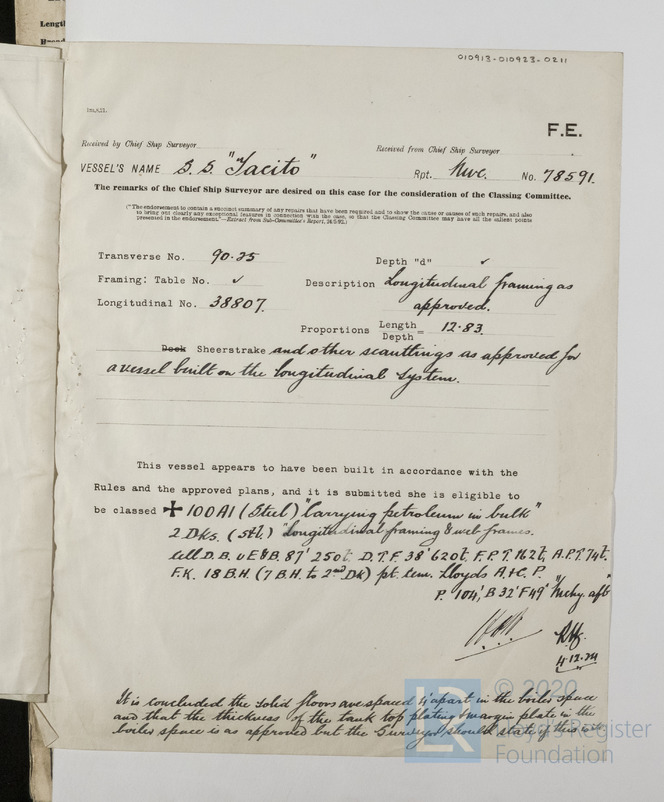 Length
010913-010923-0211
F.E.
Received by Chief Ship Surveyor
Received from Chief Ship Surveyor
VESSEL'S NAME S.S. "Tacito" Rpt. Nwc. No. 78591.
The remarks of the Chief Ship Surveyor are desired on this case for the consideration of the Classing Committee.
("The endorsement is to contain a succinct summary of any repairs that have been required and to show the cause or causes of such repairs, and also
to bring out clearly any exceptional features in connection with the case, so that the Classing Committee may have all the salient points
presented in the endorsement."—Extract from Sub-Committee's Report, 24/5/92.)
Transverse No. 90.25 Depth "d" ✓
Framing: Table No. ✓ Description Longitudinal framing as
approved.
Longitudinal No. 38807.
Proportions Length/Depth = 12.83.
Deck Sheerstrake and other scantlings as approved for
a vessel built on the longitudinal system.
This vessel appears to have been built in accordance with the
Rules and the approved plans, and it is submitted she is eligible to
be classed ✠ 100A1 (Steel) "Carrying petroleum in bulk"
2 Dks. (Stl.) "Longitudinal framing & web frames.
Cell D.B. u E&B. 87' 250t. D.T.F. 38' 620t. F.P.T. 162t, A.P.T. 74t.
F.K. 18 B.H. (7 B.H. to 2nd Dk) pt. cem. Lloyds A.&C.P.
P. 104', B 32' F 49' "Mchy. aft"
4.12.24
It is concluded the solid floors are spaced apart in the boiler space
and that the thickness of the tank top plating & margin plate in the
boiler space is as approved but the Surveyor should state if this
© 2020
LR
Lloyd's Register
Foundation